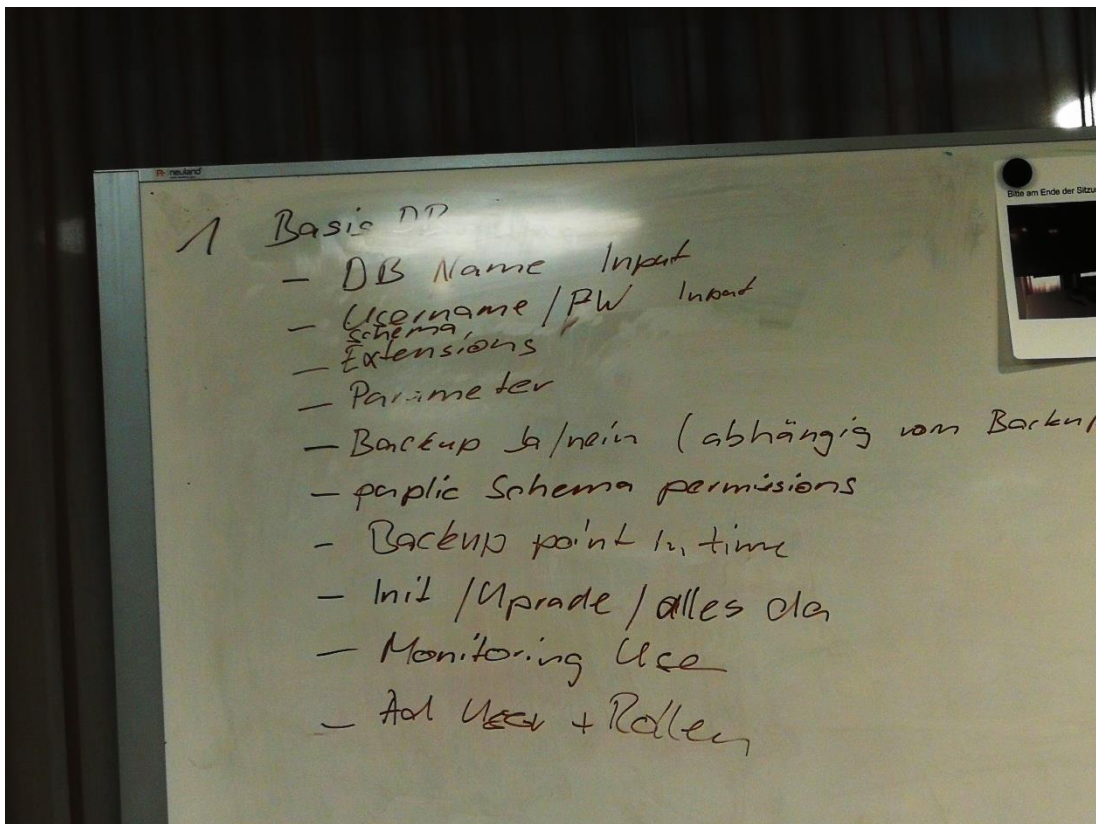 neuland
Bitte am Ende der Sitzu
1 Basic DB
- DB Name Input
- Username / PW Input
Schema,
- Extensions
- Parameter
- Backup Ja/nein (abhängig vom Backup
- puplic Schema permisions
- Backup point in time
- Init / Uprade / alles da
- Monitoring Use
- Ad User + Rollen